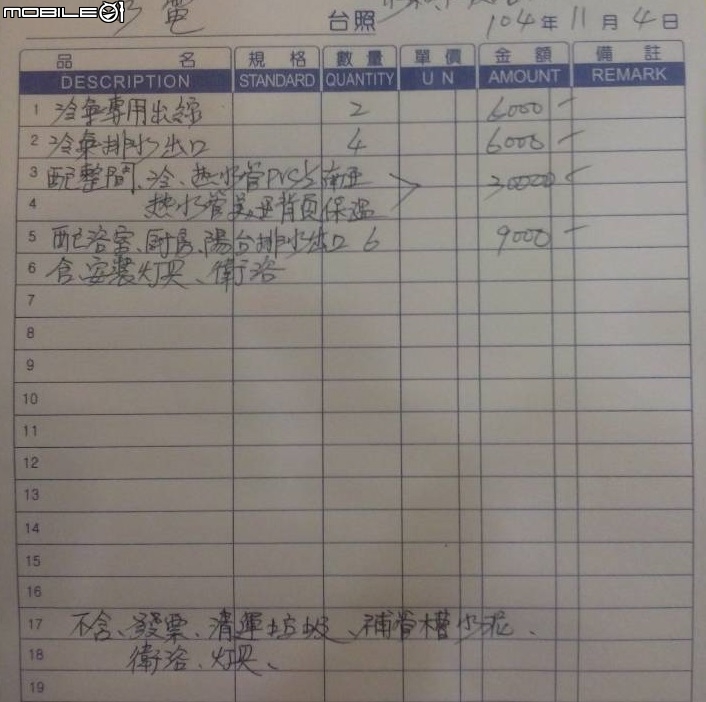 MOBILE01
電
台照
104年11月4日
品名 規格 數量 單價 金額 備註
DESCRIPTION STANDARD QUANTITY U N AMOUNT REMARK
1 冷氣專用出線 2 6000 –
2 冷氣排水出口 4 6000 –
3 配整間、冷、热水管PVC 南亞 30000 –
4 热水管 背頁保温
5 配浴室、厨房、陽台排水出口 6 9000 –
6 含安裝灯具、衛浴
7
8
9
10
11
12
13
14
15
16
17 不含、發票、清運垃圾、補管槽水泥、
18 衛浴、灯具、
19